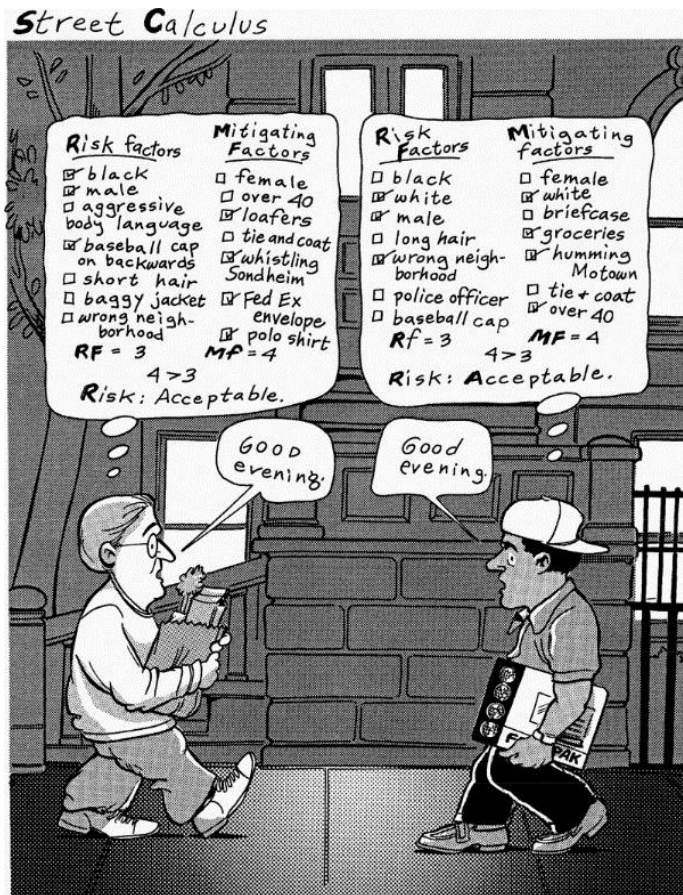 Street Calculus
Risk factors
☑ black
☑ male
☐ aggressive
body language
☑ baseball cap
on backwards
☐ short hair
☐ baggy jacket
☐ wrong neigh-
borhood
RF = 3
Mitigating
Factors
☐ female
☐ over 40
☑ loafers
☐ tie and coat
☑ whistling
Sondheim
☑ Fed Ex
envelope
☑ polo shirt
Mf = 4
4 > 3
Risk: Acceptable.
Risk
Factors
☐ black
☑ white
☑ male
☐ long hair
☑ wrong neigh-
borhood
☐ police officer
☐ baseball cap
Rf = 3
Mitigating
factors
☐ female
☑ white
☐ briefcase
☑ groceries
☑ humming
Motown
☐ tie + coat
☑ over 40
MF = 4
4 > 3
Risk: Acceptable.
GOOD
evening.
Good
evening.
PAK